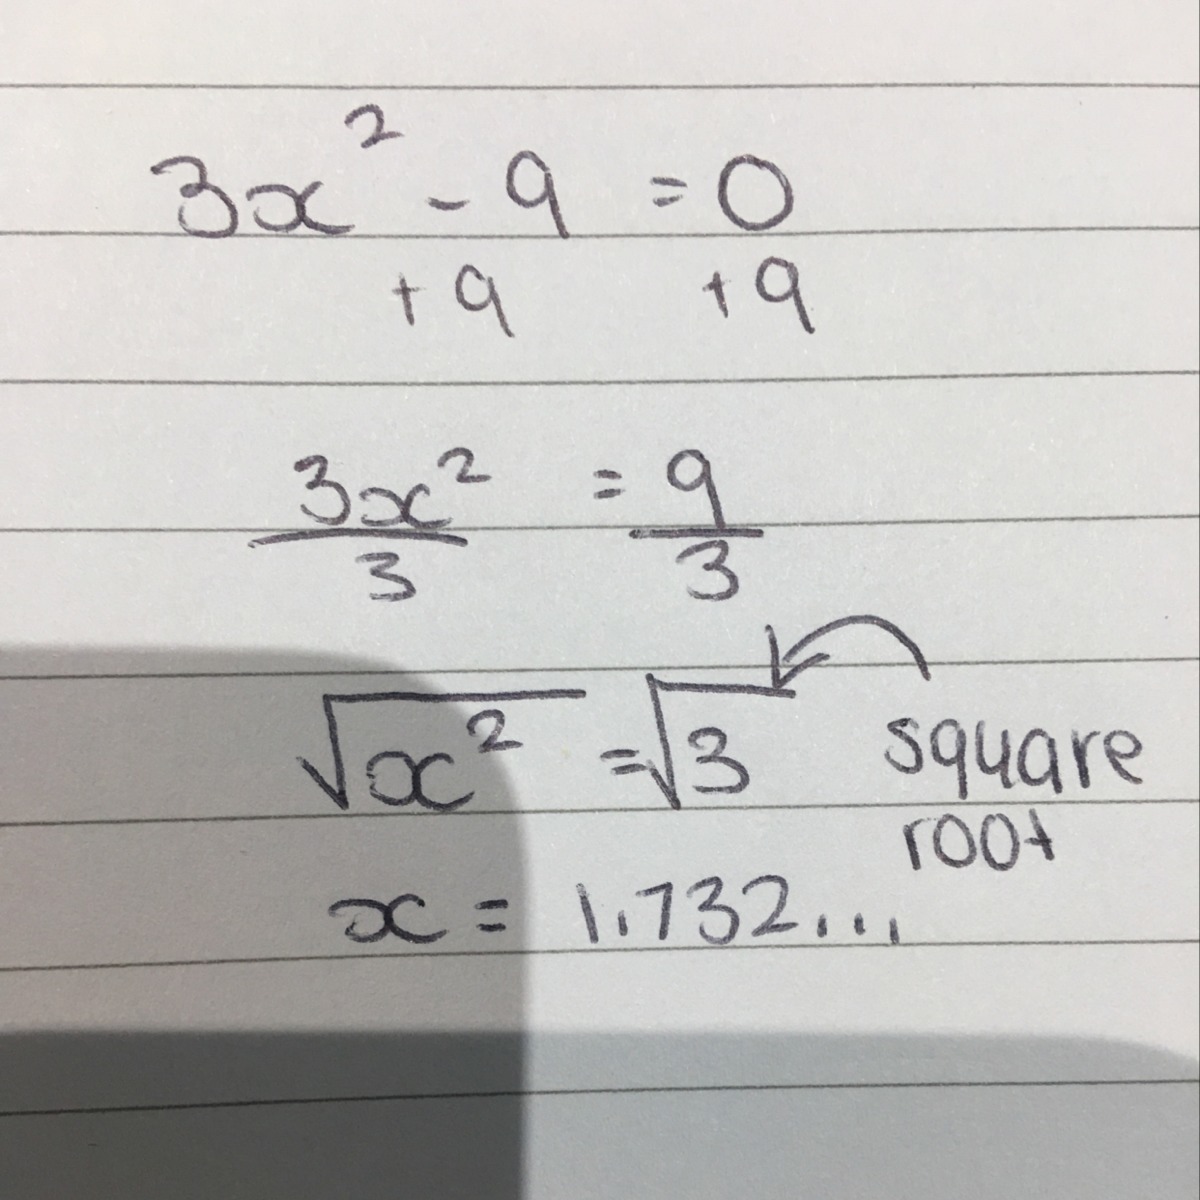 3x² - 9 = 0
+9 +9
3x² = 9
3 3
√x² = √3 square
root
x = 1.732...